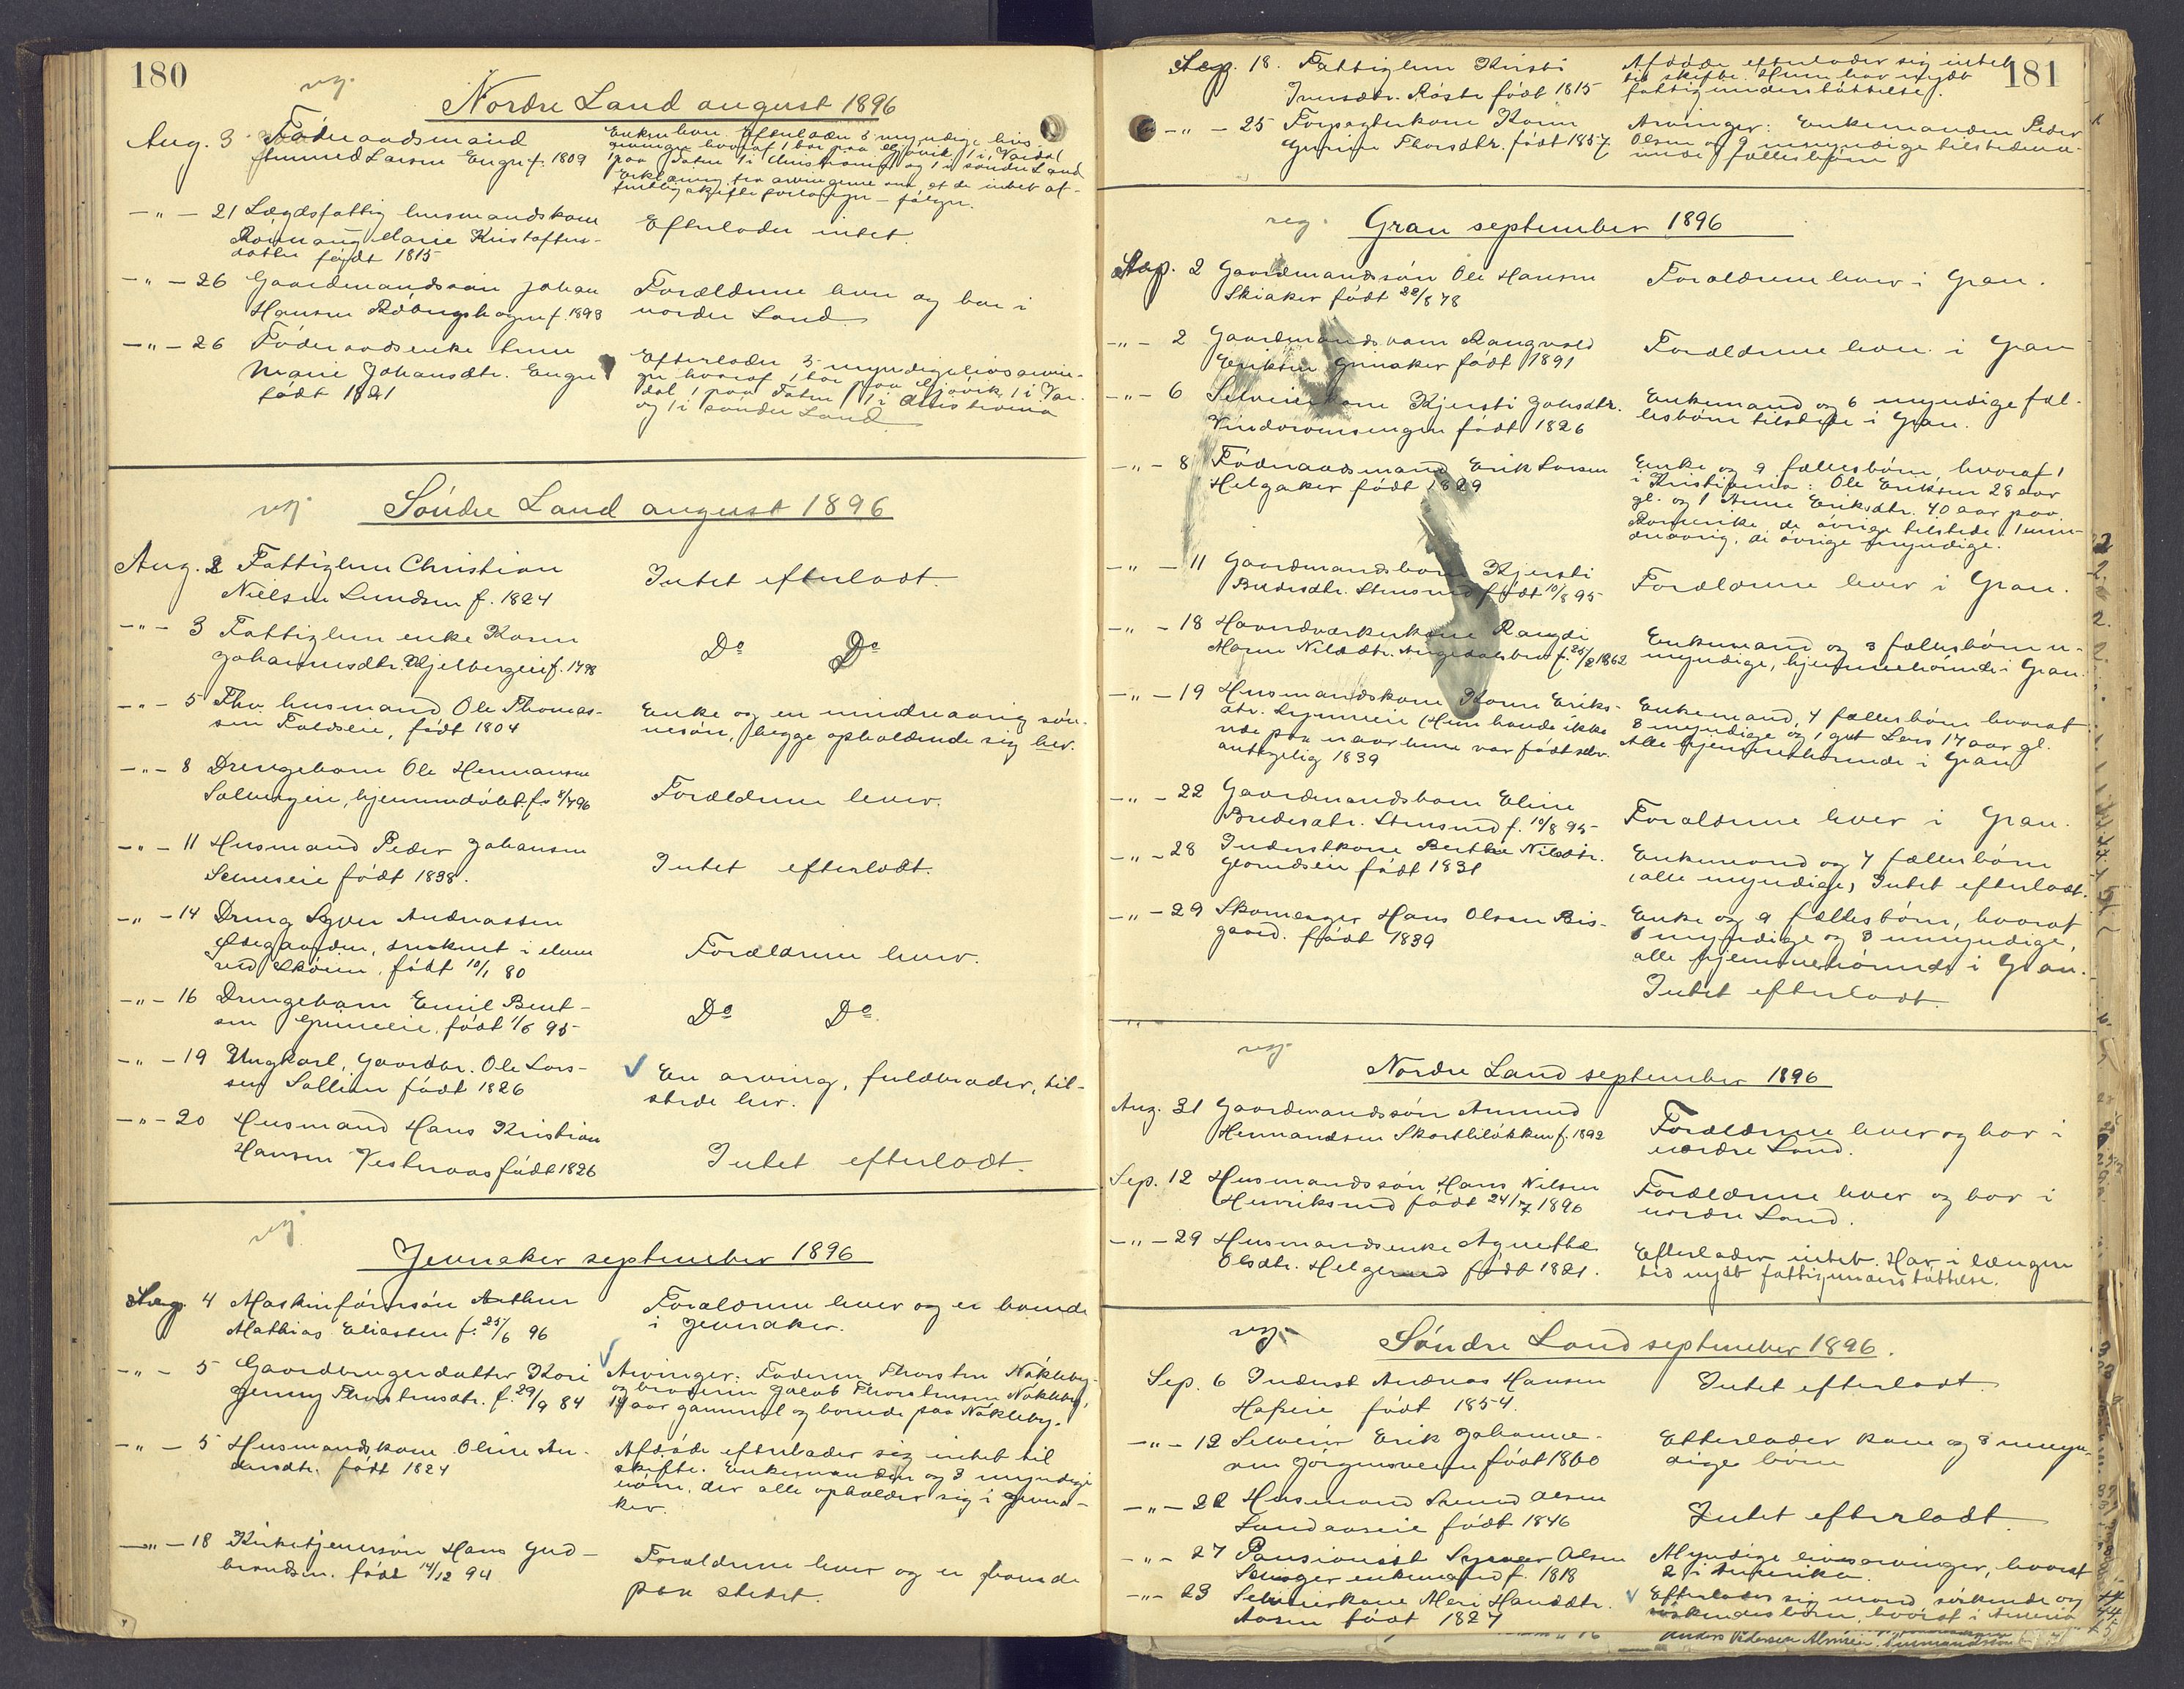 180
reg.
Nordre Land august 1896
Aug. 3 Föderaadsmand
Amund Larsen Enger f. 1809
Enken hver. Efterlader 5 myndige livs-
arvinger hvoraf 1 bor paa Gjövik, 1 i Vardal
1 paa Toten 1 i Amerika og 1 i söndre Land
Erklæring fra arvingerne om, at de intet of-
fentlig skifte forlanger – fölger.
-"- 21 Lægdsfattig husmandskone
Rönnaug Marie Kristoffers-
datter födt 1815
Efterlader intet.
-"- 26 Gaardmandssön Johan
Hansen Röbergshagen f. 1893
Forældrene lever og bor i
nordre Land.
-"- 26 Föderaadsenke Anne
Marie Johansdtr. Enger
födt 1821
Efterlader 5 myndige livsarvin-
ger hvoraf 1 bor paa Gjövik, 1 i Var-
dal 1 paa Toten 1 i
og 1 i söndre Land
reg.
Söndre Land august 1896
Aug. 2 Fattiglem Christian
Nielsen Lundsen f. 1824
Intet efterladt.
-"- 3 Fattiglem enke Karen
Johannesdtr. Kjelbergeie f. 1798
Do Do
-"- 5 Fhv. husmand Ole Thomas-
sen Foldseie, födt 1804
Enke og en mindreaarig sön-
nesön, begge opholdende sig her.
-"- 8 Drengebarn Ole Hermansen
Solbergeie, hjemmedöbt f. 8/7 96
Forældrene lever.
-"- 11 Husmand Peder Johansen
Semseie födt 1838.
Intet efterladt.
-"- 14 Dreng Syver Andreassen
Ödegaarden, druknet i elven
ved Sköien, födt 10/1 80
Forældrene lever.
-"- 16 Drengebarn Emil Bent-
sen Grimeie, födt 1/6 95
Do Do.
-"- 19 Ungkarl, Gaardbr. Ole Lars-
sen Sollien födt 1826
En arving, fuldbroder, til-
stede her.
-"- 20 Husmand Hans Kristian
Hansen Vesteraas födt 1826
Intet efterladt.
reg.
Jevnaker september 1896
Sep. 4 Maskinförersön Arthur
Mathias Eliassen f. 25/6 96
Forældrene lever og er boende
i Jevnaker.
-"- 5 Gaardbrugerdatter Kari
Jenny Thorstensdtr. f. 29/9 84
Arvinger: Faderen Thorsten Nökleby,
og broderen Jacob Thorstensen Nökleby,
19 aar gammel og boende paa Nökleby.
-"- 5 Husmandskone Oline An-
dersdtr. födt 1824
Afdöde efterlader sig intet til
skifte. Enkemanden og 3 myndige
börn, der alle opholder sig i Jevna-
ker.
-"- 18 Kirketjenersön Hans Gud-
brandsen. födt 14/12 94
Forældrene lever og er boende
paa stedet.
181
Aug. 18. Fattiglem Kirsti
Iversdtr. Röste födt 1815
Afdöde efterlader sig intet
til skifte. Hun har nydt
fattigunderstöttelse.
-"- 25 Forpagterkone Karen
Gurine Thorsdtr. födt 1857
Arvinger: Enkemanden Peder
Olsen og 9 umyndige tilstedevæ-
rende fællesbörn
reg.
Gran september 1896
Sep. 2 Gaardmandssön Ole Hansen
Skiaker födt 22/8 78
Forældrene lever i Gran.
-"- 2 Gaardmandsbarn Rangvald
Eriksen Grinaker födt 1891
Forældrene lever i Gran
-"- 6 Selveierkone Kjersti Johsdtr.
Vindorumsengen födt 1826
Enkemand og 6 myndige fæl-
lesbörn tilstede i Gran.
-"- 8 Föderaadsmand Erik Larsen
Helgaker födt 1829
Enke og 9 fællesbörn, hvoraf 1
i Kristiania: Ole Eriksen 28 aar
gl. og 1 Anne Eriksdtr. 40 aar paa
Romerike, de övrige tilstede. 1 min-
dreaarig, de övrige myndige.
-"- 11 Gaardmandsbarn Kjersti
Bredesdtr. Stensrud födt 10/8 95
Forældrene lever i Gran.
-"- 18 Haandværkerkone Rangdi
Maren Nilsdtr. f. 25/2 1862
Enkemand og 3 fællesbörn u-
myndige, hjemmehörende i Gran.
-"- 19 Husmandskone Karen Eriks-
dtr. (Hun havde ikke
rede paa naar hun var födt selv.
antagelig 1839
Enkemand, 4 fællesbörn hvoraf
3 myndige og 1 gut Lars 17 aar gl.
Alle hjemmehörende i Gran
-"- 22 Gaardmandsbarn Eline
Bredesdtr. Stensrud f. 10/8 95
Forældrene lever i Gran.
-"- 28 Inderstkone Berthe Nilsdtr.
födt 1831
Enkemand og 7 fællesbörn
(alle myndige) Intet efterladt.
-"- 29 Skomager Hans Olsen Bis-
gaard. födt 1839
Enke og 9 fællesbörn, hvoraf
6 myndige og 3 umyndige,
alle hjemmehörende i Gran.
Intet efterladt.
reg.
Nordre Land september 1896
Aug. 31 Gaardmandssön Amund
Hermandsen Skartliløkken f. 1892
Forældrene lever og bor i
nordre Land.
Sep. 12 Husmandssön Hans Nilsen
Henriksrud födt 24/7 1896
Forældrene lever og bor i
nordre Land.
-"- 29 Husmandsenke Agnethe
Olsdtr. Helgerud födt 1821.
Efterlader intet. Har i længere
tid nydt fattigunderstöttelse.
reg.
Söndre Land september 1896.
Sep. 6 Inderst Andreas Hansen
Hofseie födt 1854.
Intet efterladt.
-"- 12 Selveier Erik Johanne-
sen Jörgensveen födt 1860
Efterlader kone og 3 umyn-
dige börn
-"- 22 Husmand Svend Olsen
Landaaseie födt 1846
Intet efterladt.
-"- 27 Pensionist Syver Olsen
enkemand f. 1818
Myndige livsarvinger, hvoraf
2 i Amerika.
-"- 23 Selveierkone Mari Hansdtr.
Aasen födt 1827
Efterlader sig mand, söskende og
söskendebörn, hvoraf i Amerika
Anders Pedersen